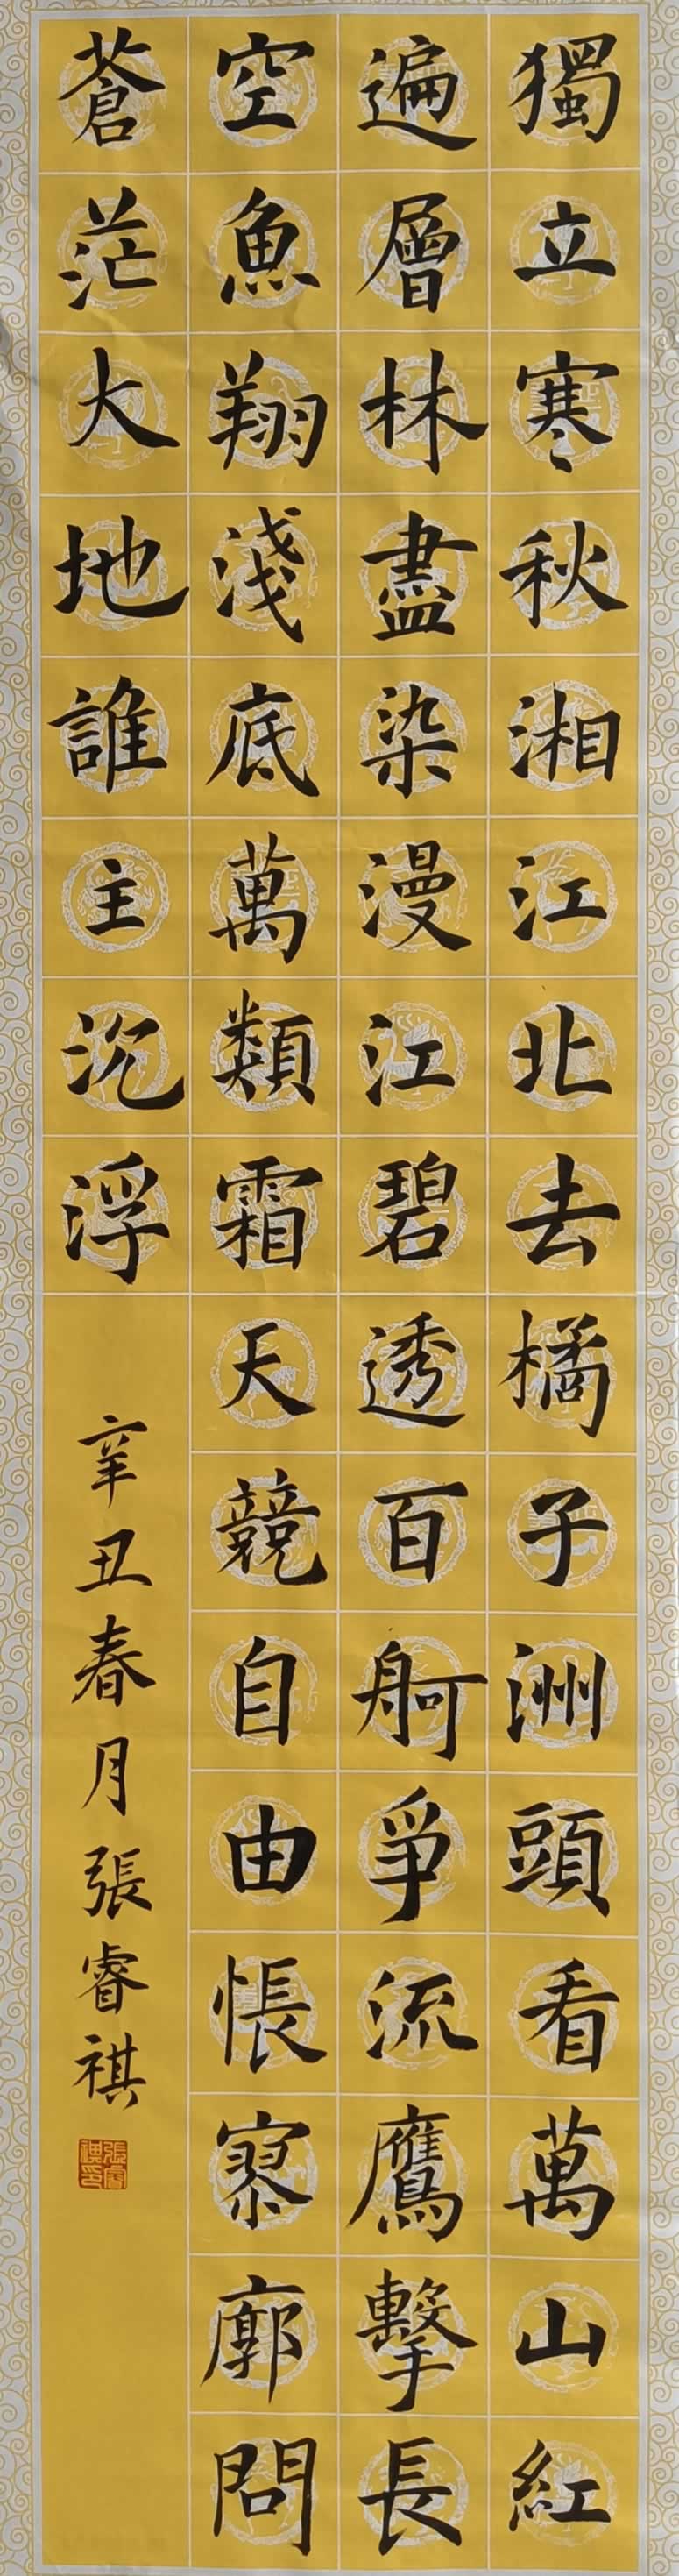 獨立寒秋湘江北去橘子洲頭看萬山紅
遍層林盡染漫江碧透百舸爭流鷹擊長
空魚翔淺底萬類霜天競自由悵寥廓問
蒼茫大地誰主沉浮
辛丑春月張睿祺
張睿祺印